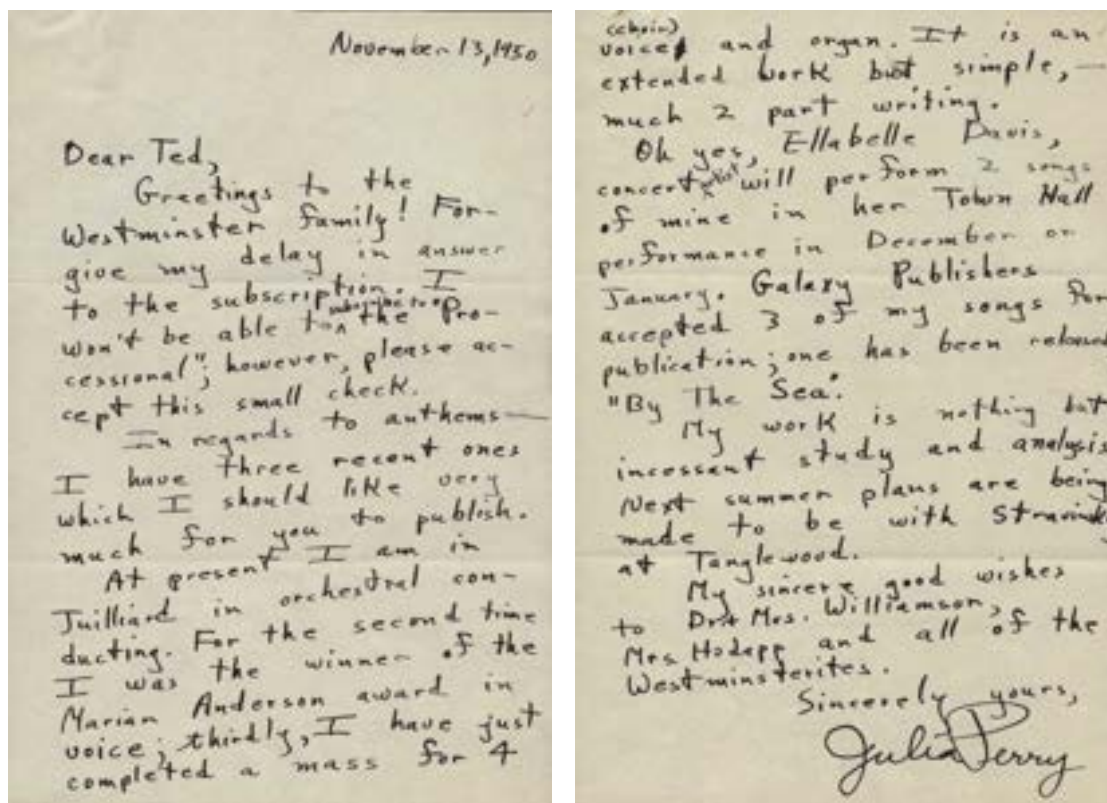 November 13, 1950
Dear Ted,
Greetings to the
Westminster family! For-
give my delay in answer
to the subscription. I
won't be able to subscribe to the Pro-
cessional"; however, please ac-
cept this small check.
In regards to anthems—
I have three recent ones
which I should like very
much for you to publish.
At present I am in
Juilliard in orchestral con-
ducting. For the second time
I was the winner of the
Marian Anderson award in
voice; thirdly, I have just
completed a mass for 4
(choir)
voices and organ. It is an
extended work but simple,—
much 2 part writing.
Oh yes, Ellabelle Davis,
concert artist will perform 2 songs
of mine in her Town Hall
performance in December or
January. Galaxy Publishers
accepted 3 of my songs for
publication; one has been released
"By The Sea".
My work is nothing but
incessant study and analysis
Next summer plans are being
made to be with Stravinsk
at Tanglewood.
My sincere good wishes
to Dr+ Mrs. Williamson,
Mrs Hodapp and all of the
Westminsterites.
Sincerely yours,
Julia Perry